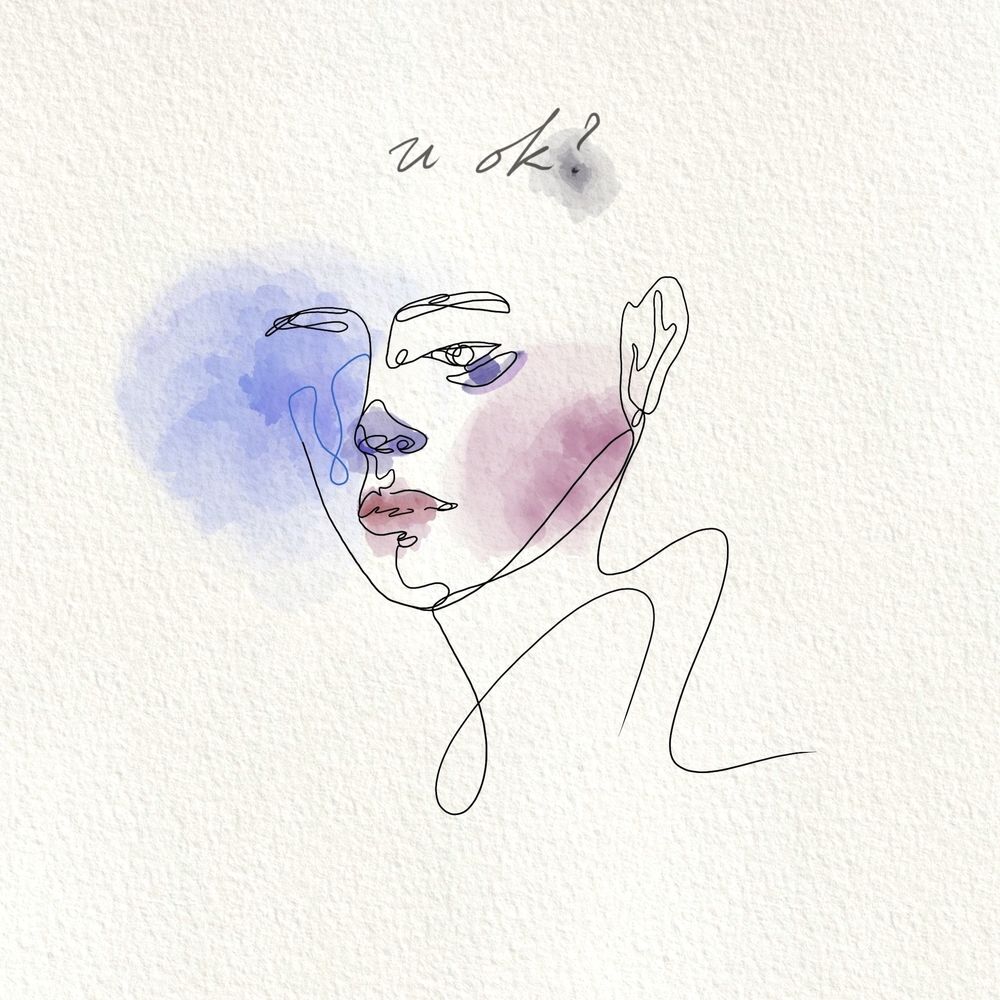 u ok?